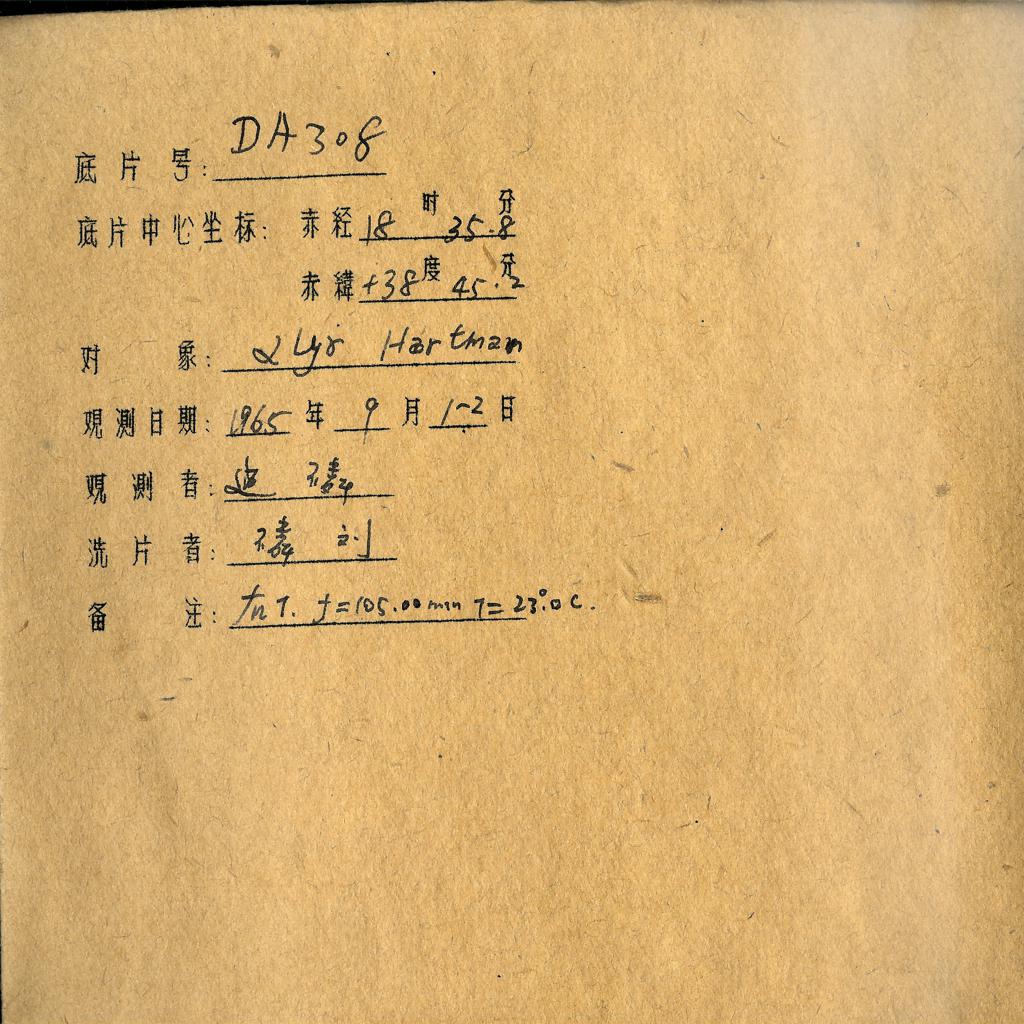 底片号: DA308
底片中心坐标: 赤経 18时 35.8分
赤緯 +38度 45.2分
对 象: α Lyr Hartman
观测日期: 1965 年 9 月 1-2 日
观测者: 迪 祷
洗片者: 祷 刘
备 注: t=105.00min T=23°.0C.